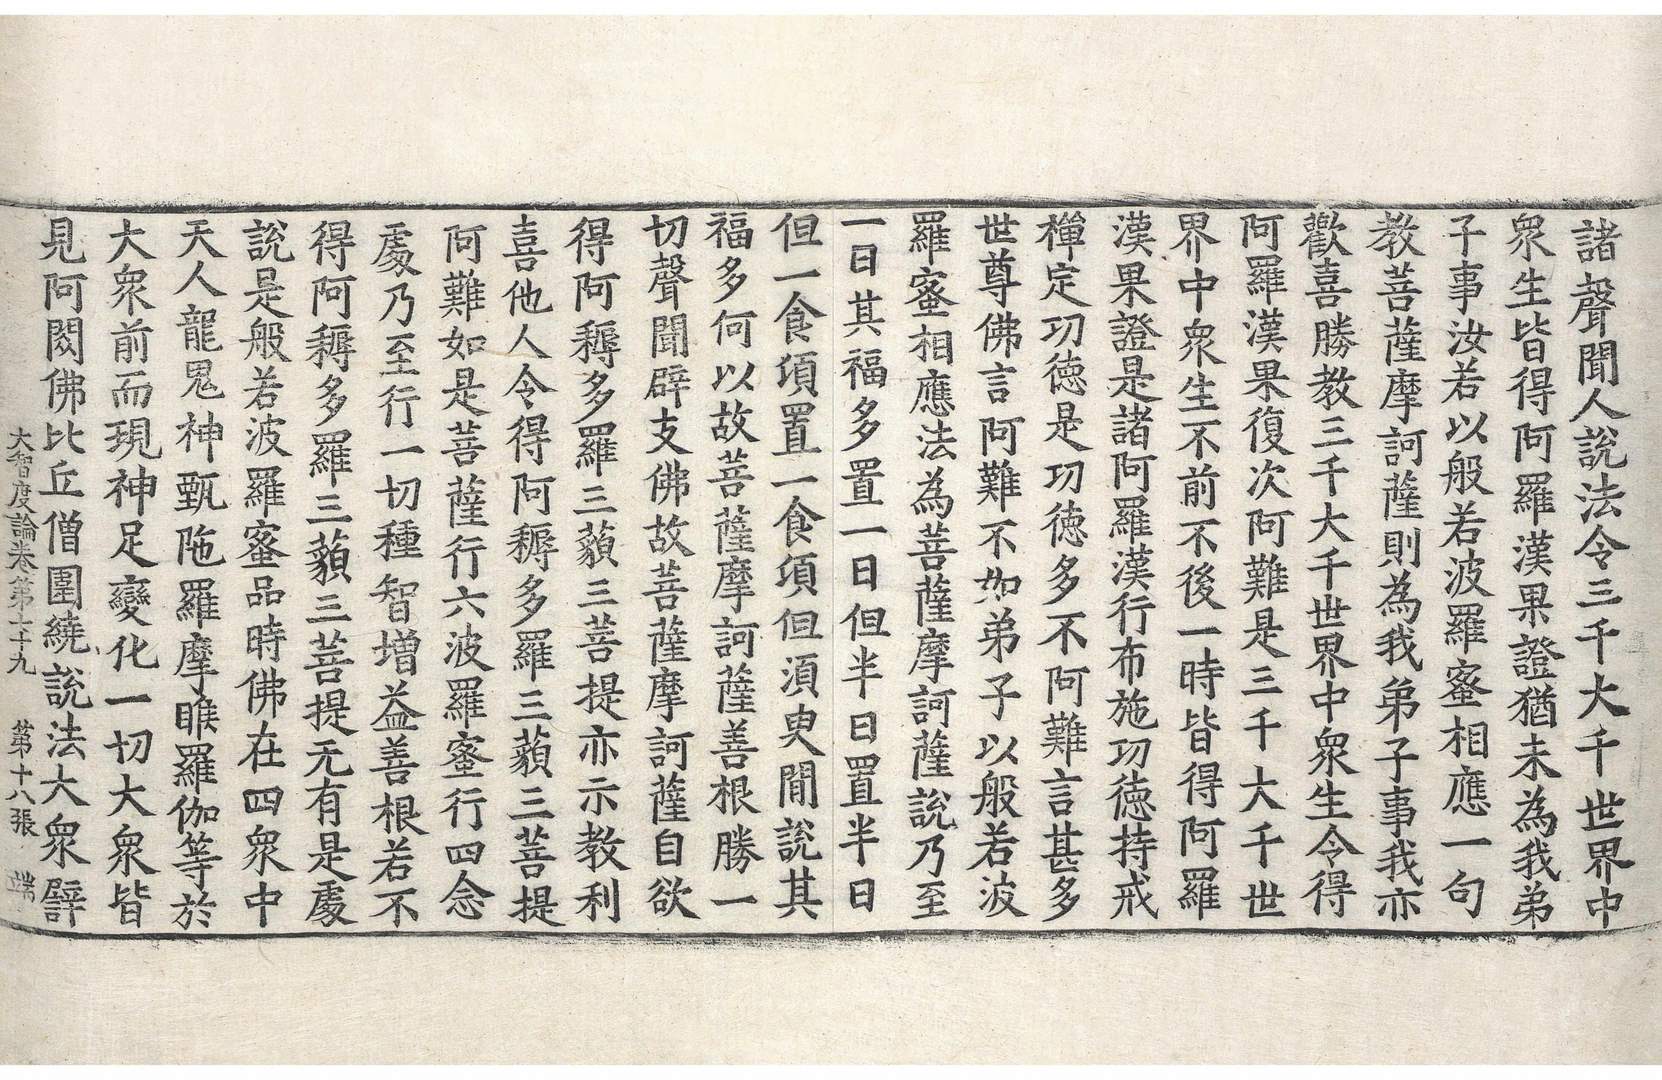 諸聲聞人說法令三千大千世界中
衆生皆得阿羅漢果證猶未為我弟
子事汝若以般若波羅蜜相應一句
教菩薩摩訶薩則為我弟子事我亦
歡喜勝教三千大千世界中衆生令得
阿羅漢果復次阿難是三千大千世
界中衆生不前不後一時皆得阿羅
漢果證是諸阿羅漢行布施功德持戒
禪定功德是功德多不阿難言甚多
世尊佛言阿難不如弟子以般若波
羅蜜相應法為菩薩摩訶薩說乃至
一日其福多置一日但半日置半日
但一食頃置一食頃但須臾閒說其
福多何以故菩薩摩訶薩善根勝一
切聲聞辟支佛故菩薩摩訶薩自欲
得阿耨多羅三藐三菩提亦示教利
喜他人令得阿耨多羅三藐三菩提
阿難如是菩薩行六波羅蜜行四念
處乃至行一切種智增益善根若不
得阿耨多羅三藐三菩提无有是處
說是般若波羅蜜品時佛在四衆中
天人龍鬼神甄陁羅摩睺羅伽等於
大衆前而現神足變化一切大衆皆
見阿閦佛比丘僧圍繞說法大衆辟
大智度論卷第七十九 第十八張 端